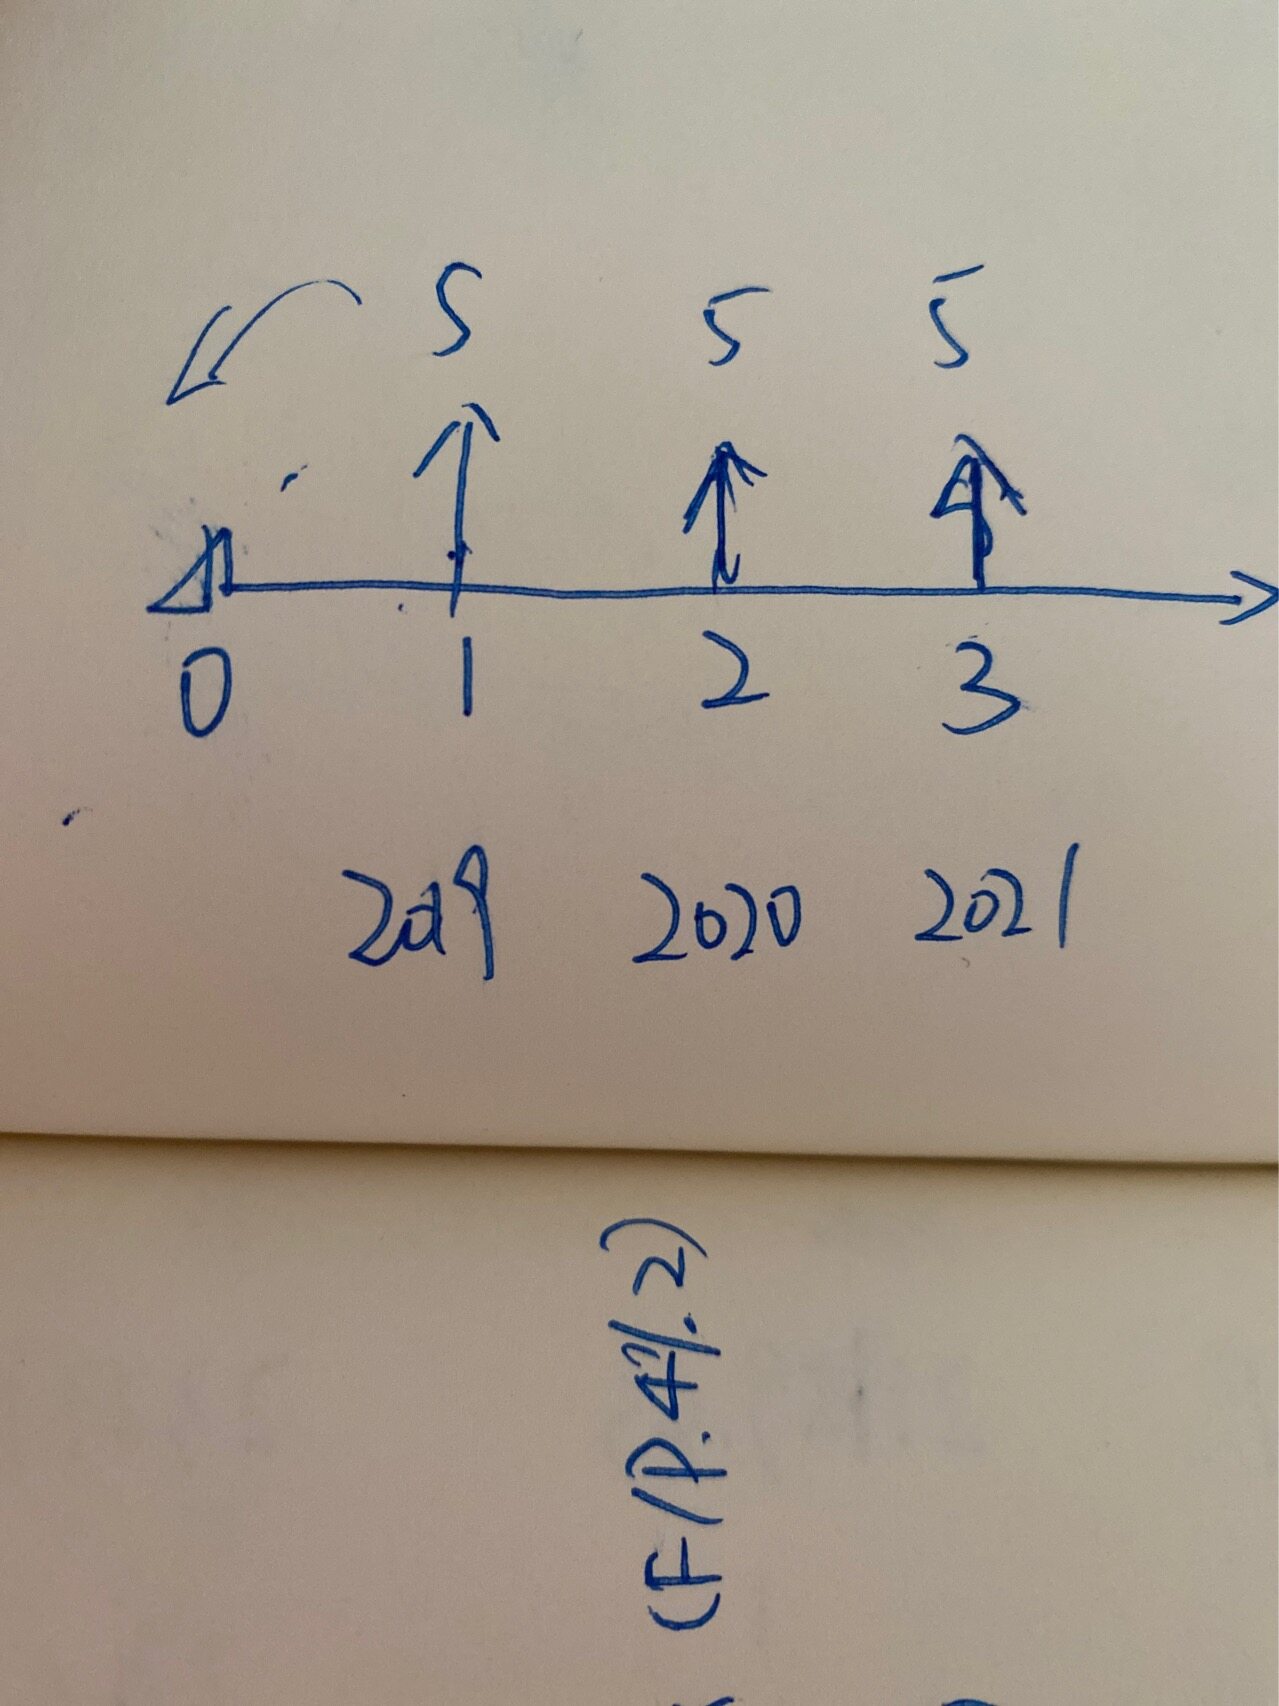 5 5 5
0 1 2 3
2019 2020 2021
(F/P.4%.2)